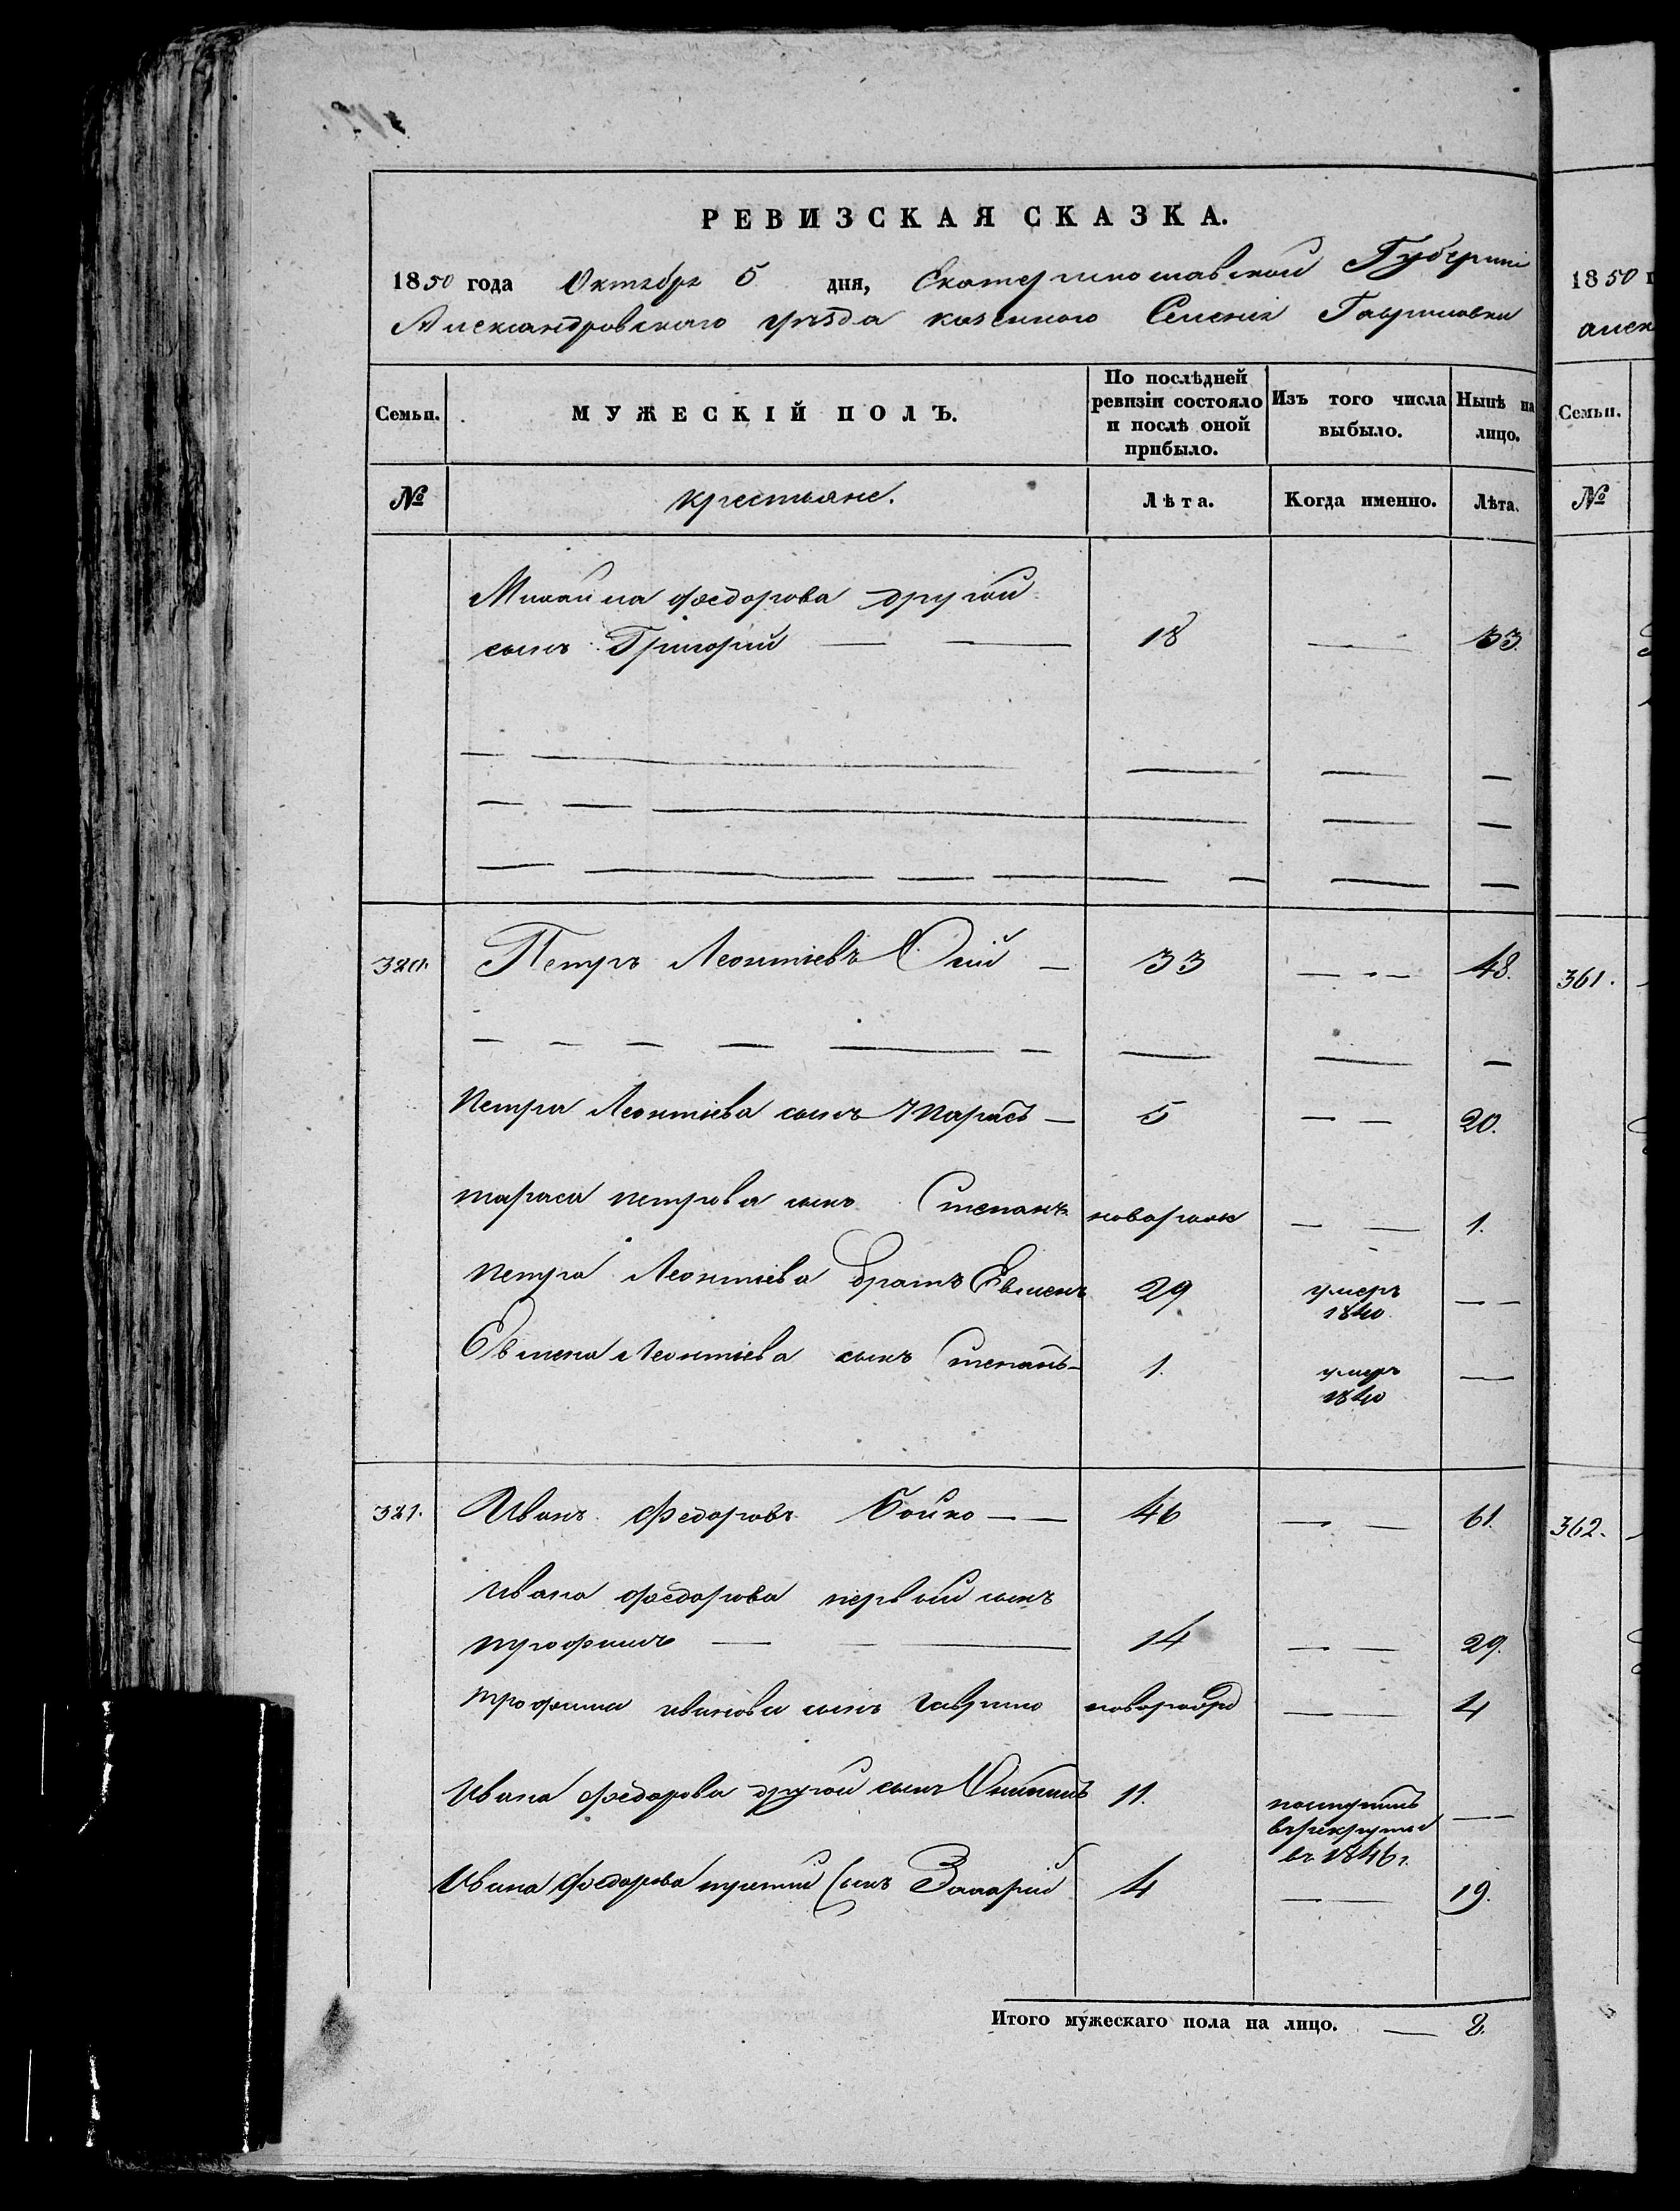 РЕВИЗСКАЯ СКАЗКА.
1850 года Октября 5 дня, Екатеринославской Губерніи
Александровскаго уѣзда казенного Селенія Гавриловки
Семьи. МУЖЕСКІЙ ПОЛЪ. По послѣдней ревизіи состояло и послѣ оной прибыло. Изъ того числа выбыло. Нынѣ на лицо.
№ крестьяне. Лѣта. Когда именно. Лѣта.
Михайла Федорова другой
сынъ Григорий — — 18 — 33.
320. Петръ Леонтіевъ — 33 — — 48.
Петра Леонтіева сынъ Тарасъ — 5 — — 20.
тараса петрова сынъ Степанъ новорожд — — 1.
петра Леонтіева братъ Евменъ 29 умеръ 1840 — —
Евмена Леонтіева сынъ Степанъ — 1. умеръ 1840 —
321. Иванъ Федоровъ Бойко — — 46 — — 61.
Ивана Федорова первый сынъ
трофимъ — — — 14 — — 29.
трофима иванова сынъ Гаврило новорожд — — 4
Ивана Федорова другой сынъ 11. поступилъ в рекруты въ 1846 г. —
Ивана Федорова третий сынъ Захарий 4 — — 19.
Итого мужескаго пола на лицо. — 8.
1850 г
алек
Семьи.
№
361.
362.